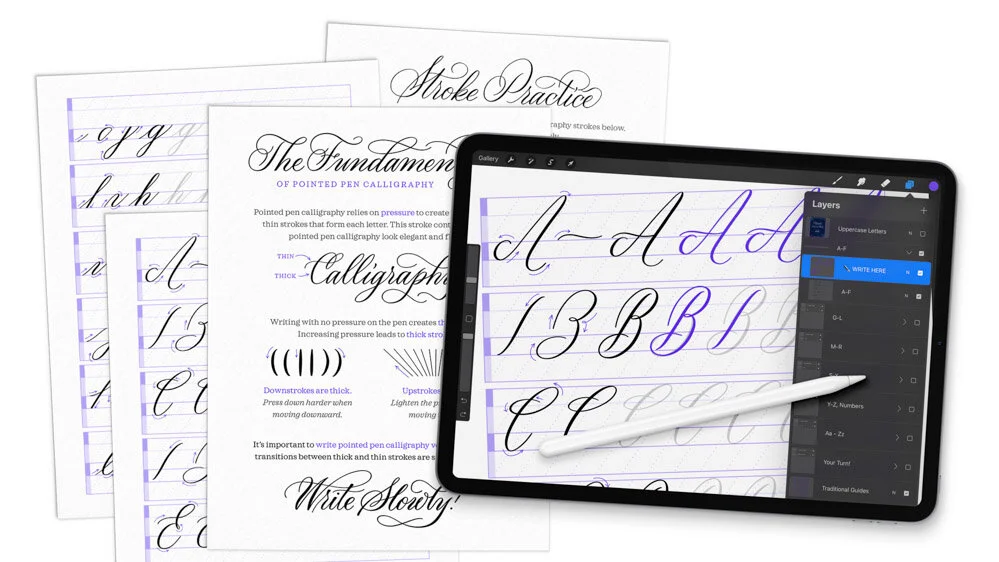 Stroke Practice
raphy strokes below.
o y g g
h h h
The Fundamen
OF POINTED PEN CALLIGRAPHY
Pointed pen calligraphy relies on pressure to create
thin strokes that form each letter. This stroke cont
pointed pen calligraphy look elegant and f
THIN
THICK
Calligraphy
Writing with no pressure on the pen creates th
Increasing pressure leads to thick stro
Downstrokes are thick.
Press down harder when
moving downward.
Upstrokes
Lighten the p
moving
It's important to write pointed pen calligraphy
transitions between thick and thin strokes are s
Write Slowly!
A
B
C
E
Gallery
A A A A
B B B B
C C C C
Layers
Uppercase Letters N
A-F
WRITE HERE N
A-F N
G-L
M-R
S-X
Y-Z, Numbers
Aa - Zz
Your Turn!
Traditional Guides N